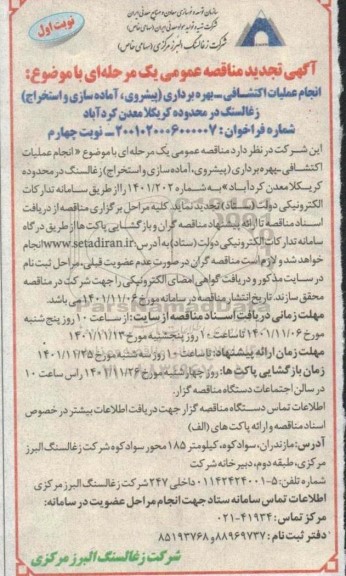 سازمان توسعه و نوسازی معادن و صنایع معدنی ایران
شرکت تهیه و تولید مواد معدنی ایران (سهامی خاص)
شرکت زغالسنگ البرز مرکزی (سهامی خاص)
نوبت اول
آگهی تجدید مناقصه عمومی یک مرحله‌ای با موضوع:
انجام عملیات اکتشافی - بهره برداری (پیشروی، آماده سازی و استخراج)
زغالسنگ در محدوده کریکلا معدن کردآباد
شماره فراخوان: ۲۰۰۱۰۲۰۰۰۶۰۰۰۰۰۷ - نوبت چهارم
این شرکت در نظر دارد مناقصه عمومی یک مرحله‌ای با موضوع «انجام عملیات
اکتشافی-بهره برداری (پیشروی، آماده سازی و استخراج) زغالسنگ در محدوده
کریکلا معدن کردآباد» به شماره ۱۴۰۱/۲۰۲ را از طریق سامانه تدارکات
الکترونیکی دولت (ستاد) تجدید نماید. کلیه مراحل برگزاری مناقصه از دریافت
اسناد مناقصه تا ارائه پیشنهاد مناقصه گران و بازگشایی پاکت ها از طریق درگاه
سامانه تدارکات الکترونیکی دولت (ستاد) به آدرس www.setadiran.ir انجام
خواهد شد و لازم است مناقصه گران در صورت عدم عضویت قبلی، مراحل ثبت نام
در سایت مذکور و دریافت گواهی امضای الکترونیکی را جهت شرکت در مناقصه
محقق سازند. تاریخ انتشار مناقصه در سامانه مورخ ۱۴۰۱/۱۱/۰۶ می باشد.
مهلت زمانی دریافت اسناد مناقصه از سایت: از ساعت ۱۰ روز پنج شنبه
مورخ ۱۴۰۱/۱۱/۰۶ تا ساعت ۱۰ روز پنجشنبه مورخ ۱۴۰۱/۱۱/۱۳
مهلت زمان ارائه پیشنهاد: تا ساعت ۱۰ روز سه شنبه مورخ ۱۴۰۱/۱۱/۲۵
زمان بازگشایی پاکت ها: روز چهارشنبه مورخ ۱۴۰۱/۱۱/۲۶ راس ساعت ۱۰
در سالن اجتماعات دستگاه مناقصه گزار.
اطلاعات تماس دستگاه مناقصه گزار جهت دریافت اطلاعات بیشتر در خصوص
اسناد مناقصه و ارائه پاکت های (الف)
آدرس: مازندران، سوادکوه، کیلومتر ۱۸۵ محور سوادکوه شرکت زغالسنگ البرز
مرکزی، طبقه دوم، دبیرخانه شرکت
شماره تلفن: ۵-۰۱۱۴۲۴۲۴۰۰۱ داخلی ۲۴۷ شرکت زغالسنگ البرز مرکزی
اطلاعات تماس سامانه ستاد جهت انجام مراحل عضویت در سامانه:
مرکز تماس: ۴۱۹۳۴-۰۲۱
دفتر ثبت نام: ۸۸۹۶۹۷۳۷ و ۸۵۱۹۳۷۶۸
شرکت زغالسنگ البرز مرکزی